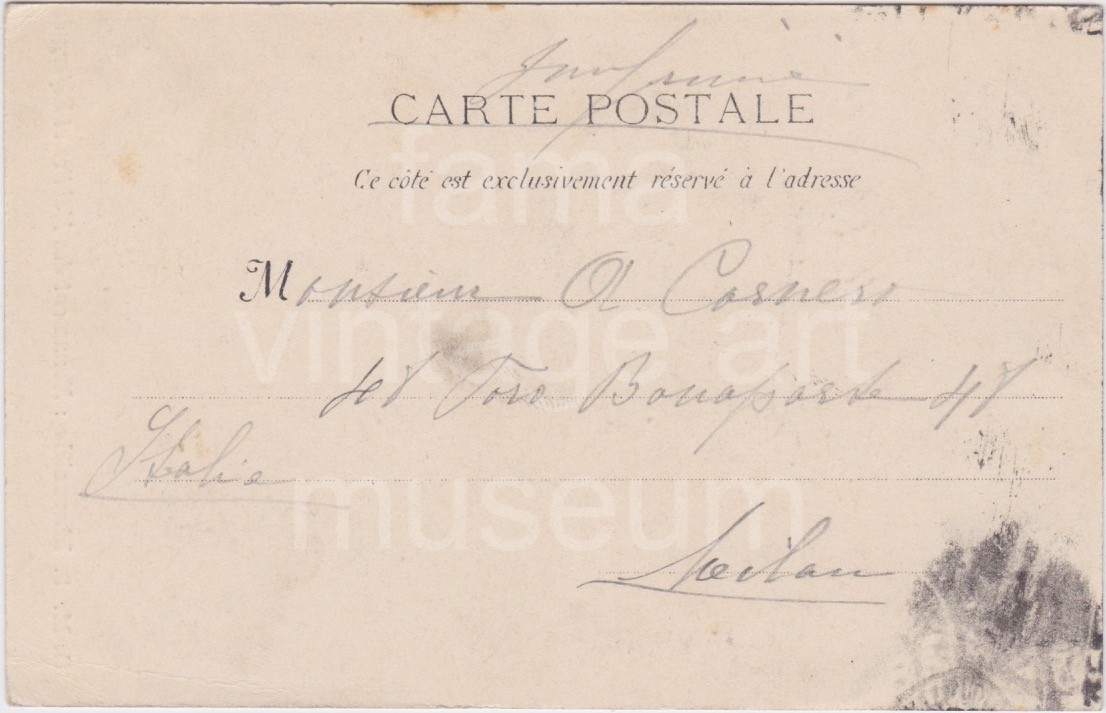 Imprimé
CARTE POSTALE
Ce côté est exclusivement réservé à l'adresse
Monsieur A Cornero
48 Foro Bonaparte 48
Italie
Milan
fama
vintage art
museum